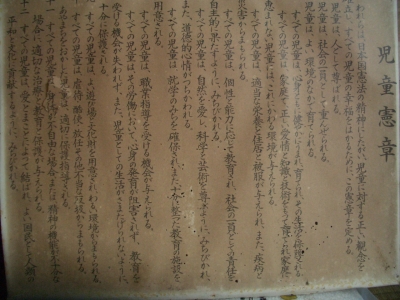 児童憲章
われらは、日本国憲法の精神にしたがい、児童に対する正しい観念を
すべての児童の幸福をはかるために、この憲章を定める。
児童は、人として尊ばれる。
児童は、社会の一員として重んぜられる。
児童は、よい環境のなかで育てられる。
すべての児童は、心身ともに健やかにうまれ、育てられ、その生活を保障される。
すべての児童は、家庭で、正しい愛情と知識と技術をもって育てられ、家庭に
恵まれない児童には、これにかわる環境が与えられる。
すべての児童は、適当な栄養と住居と被服が与えられ、また、疾病と
災害からまもられる。
すべての児童は、個性と能力に応じて教育され、社会の一員としての責任を
自主的に果たすように、みちびかれる。
すべての児童は、自然を愛し、科学と芸術を尊ぶように、みちびかれ、
また、道徳的心情がつちかわれる。
すべての児童は、就学のみちを確保され、また、十分に整った教育の施設を
用意される。
すべての児童は、職業指導を受ける機会が与えられる。
すべての児童は、その労働において、心身の発育が阻害されず、教育を
受ける機会が失われず、また、児童としての生活がさまたげられないように、
十分に保護される。
すべての児童は、よい遊び場と文化財を用意され、わるい環境からまもられる。
すべての児童は、虐待、酷使、放任その他不当な取扱からまもられる。
あやまちをおかした児童は、適切に保護指導される。
すべての児童は、身体が不自由な場合、または精神の機能が不十分な
場合に、適切な治療と教育と保護が与えられる。
すべての児童は、愛とまことによって結ばれ、よい国民として人類の
平和と文化に貢献するように、みちびかれる。